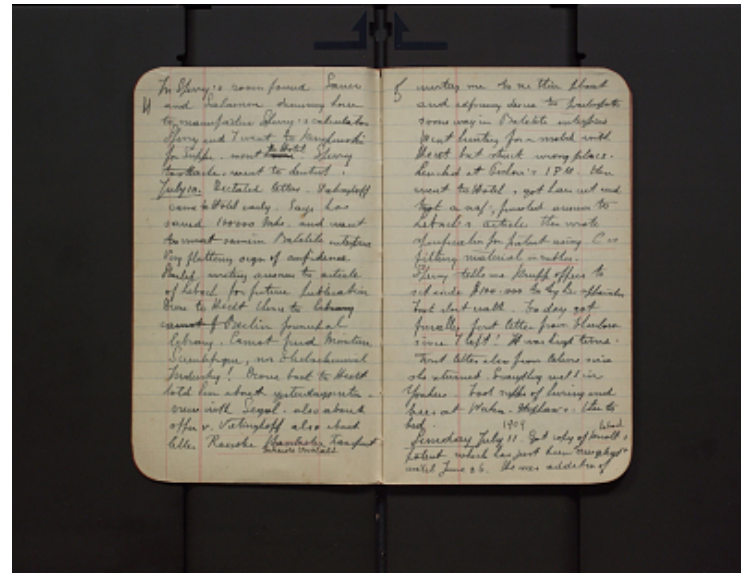 In Sperry's room found Sauer
and Salomon drawing home
to manufacture Sperry's calculator
Sperry and I went to Kempinski
for Supper. went to Hotel. Sperry
toothache. went to dentist.
July 10. Dictated letters.
came to Hotel early. Says has
saved 100000 Mks. and want
to invest same in Bakelite enterprise
Very flattering sign of confidence
Started writing answer to article
of Lebach for future publication
Drove to Hecht then to library
cannot f Berlin
library. Cannot find Moniteur
Scientifique, nor
Industry! Drove back to Hecht
told him about yesterday's inter-
view with Segal. also about
offer v. Vietinghoff also about
letter
of inviting me to see them about
and expressing desire to participate
some way in Bakelite enterprise
Went hunting for a model with
Hecht but struck wrong place.
Lunched at 1 P.M. then
went to Hotel, got hair cut and
kept a nap, finished answer to
Lebach's article then wrote
specification for patent using C as
filtering material insoluble.
Sperry tells me Krupp offers to
set aside $100.000 to try his apparatus
but dont walk. To day got
finally first letter from
since I left! It was high time.
First letter also from Celine since
she returned. Everything well in
Yonkers. Took night of living and
beer at then to
bed. 1909
Sunday July 11. Got copy of Knoll's Lebach
patent which has just been
until June 26. It was